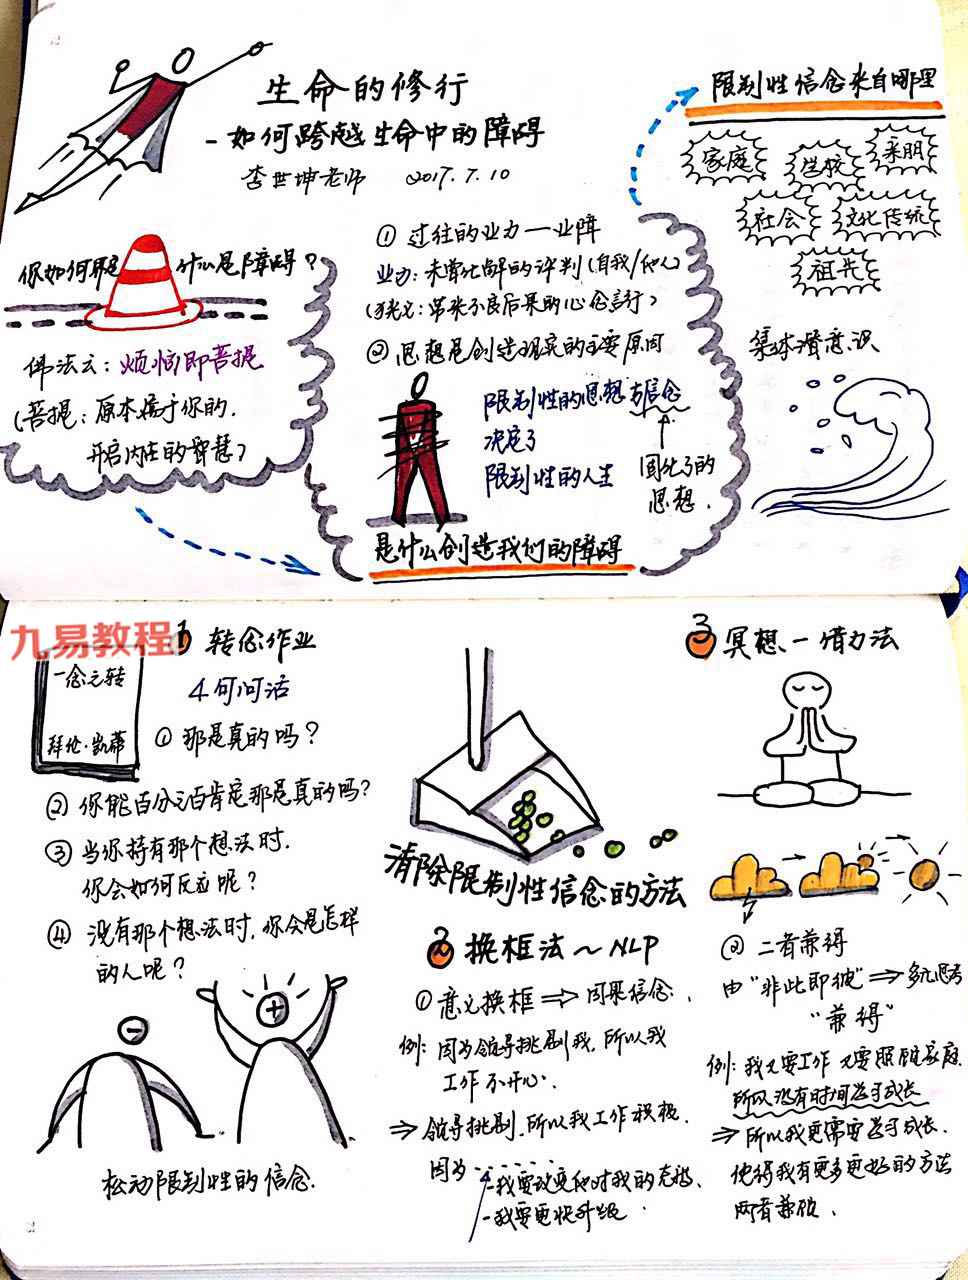 生命的修行
-如何跨越生命中的障碍
李世坤老师 2017.7.10
什么是障碍?
佛法云:烦恼即菩提
(菩提:原本属于你的.
开启内在的智慧)
① 过往的业力一业障
业力:未常化解的评判(自我/他人)
② 思想是创造现实的主要原因
限制性的思想与信念
决定了
限制性的人生
固化了的
思想.
是什么创造我们的障碍
限制性信念来自哪里
家庭
学校
亲朋
社会
文化传统
祖先
集体潜意识
九易教程
1 转念作业
一念之转
拜伦·凯蒂
4句问话
① 那是真的吗?
② 你能百分之百肯定那是真的吗?
③ 当你持有那个想法时.
你会如何反应呢?
④ 没有那个想法时,你会是怎样
的人呢?
松动限制性的信念.
清除限制性信念的方法
2 换框法~NLP
① 意义换框⇒因果信念.
例:因为领导挑剔我,所以我
工作不开心.
⇒领导挑剔,所以我工作积极.
因为------
-我要改变他对我的态度.
-我要更快升级.
3 冥想一借力法
② 二者兼得
由"非此即彼"⇒多元思考
"兼得"
例:我又要工作又要照顾家庭.
所以没有时间学习成长
⇒所以我更需要学习成长.
使得我有更多更好的方法
两者兼顾.